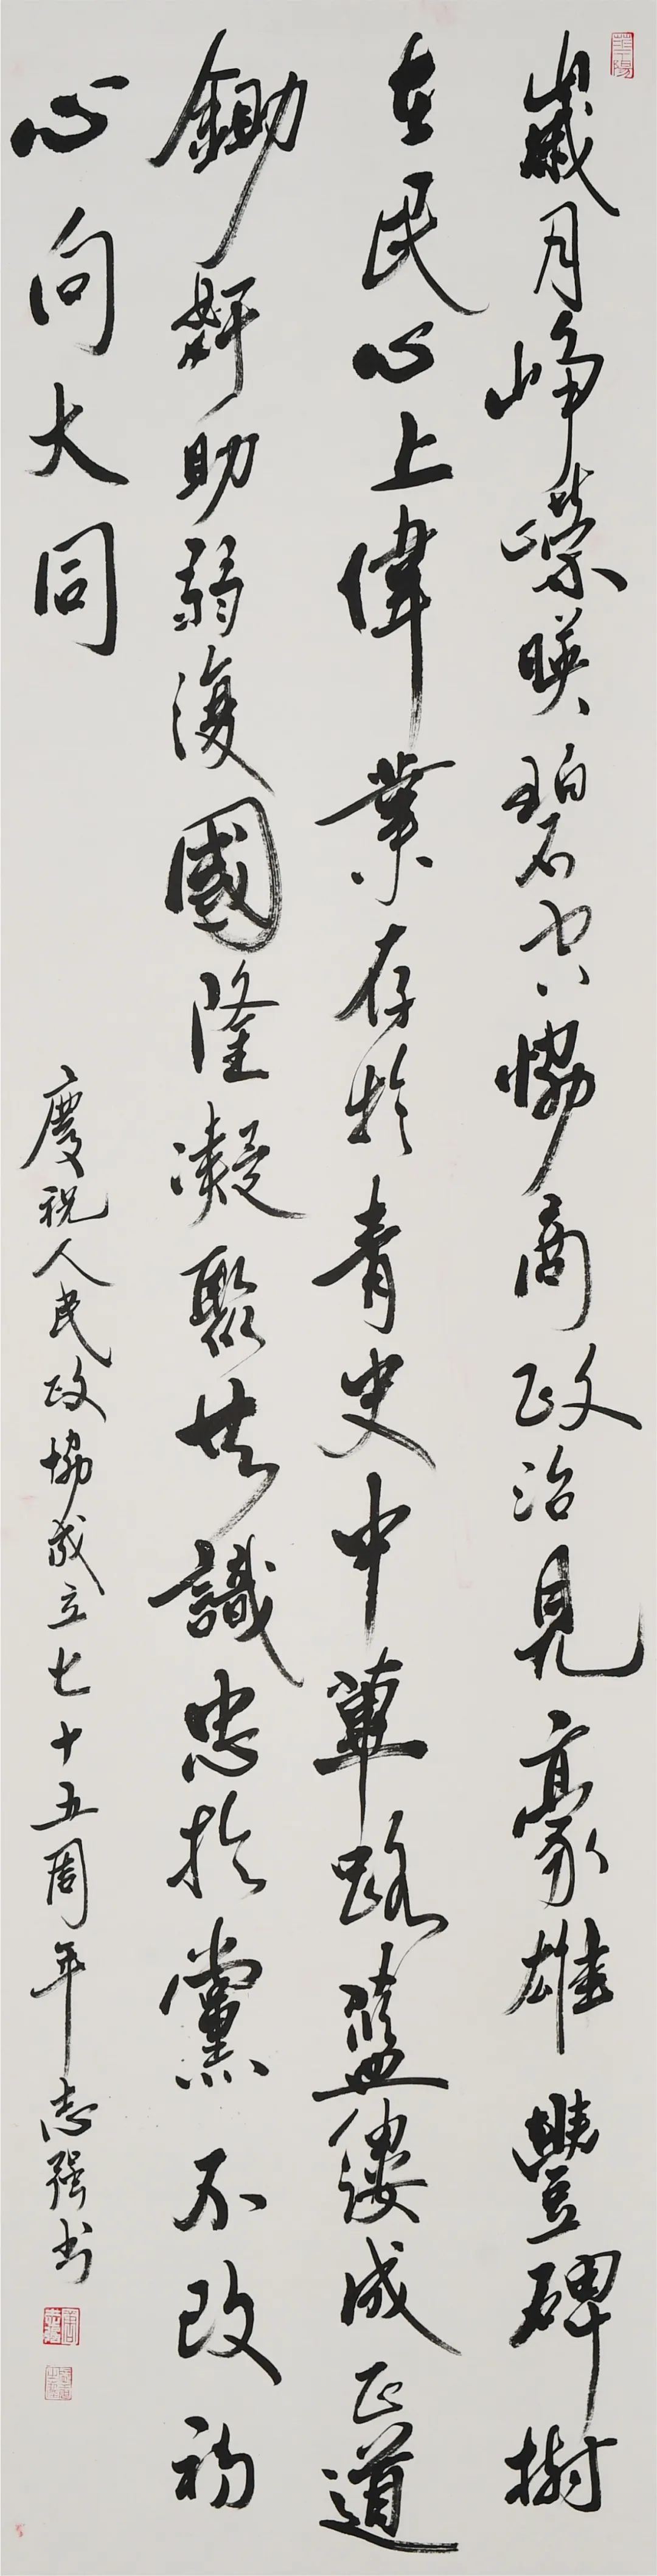 嵗月崢嶸暎碧空協商政治見豪雄豐碑樹
在民心上偉業存於青史中蓽路藍縷成正道
鋤奸助弱復國隆凝聚共識忠於黨不改初
心向大同
慶祝人民政協成立七十五周年志强书